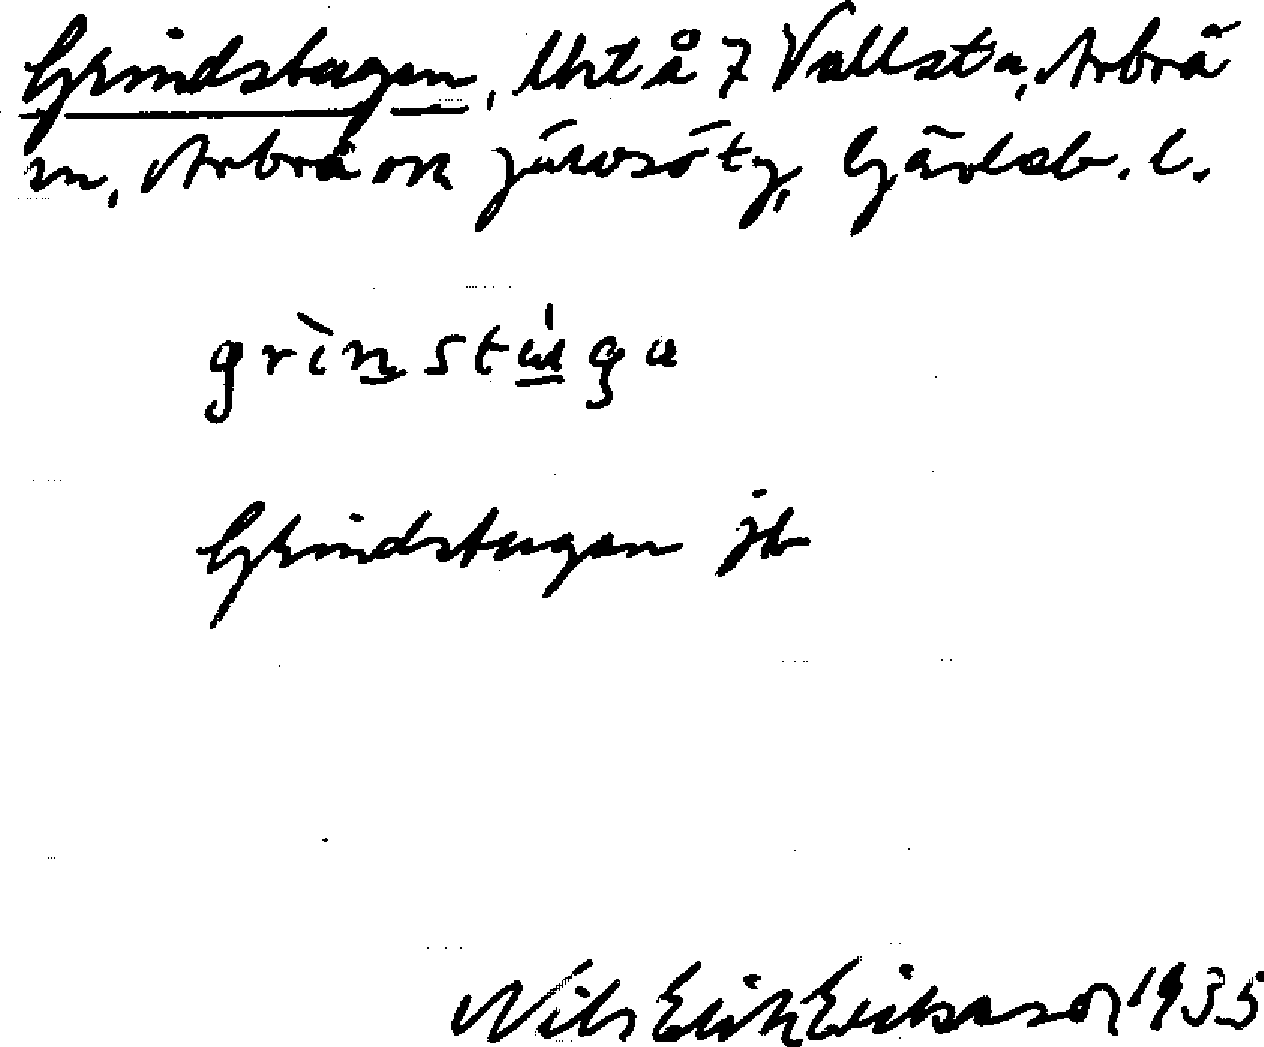 Grindstugan, Uht å 7 Vallsta, Arbrå
sn, Arbrå ok Järvsö tg, Gävleb. l.
grìnstúga
Grindstugan jb
Nils Erik Eriksson 1935